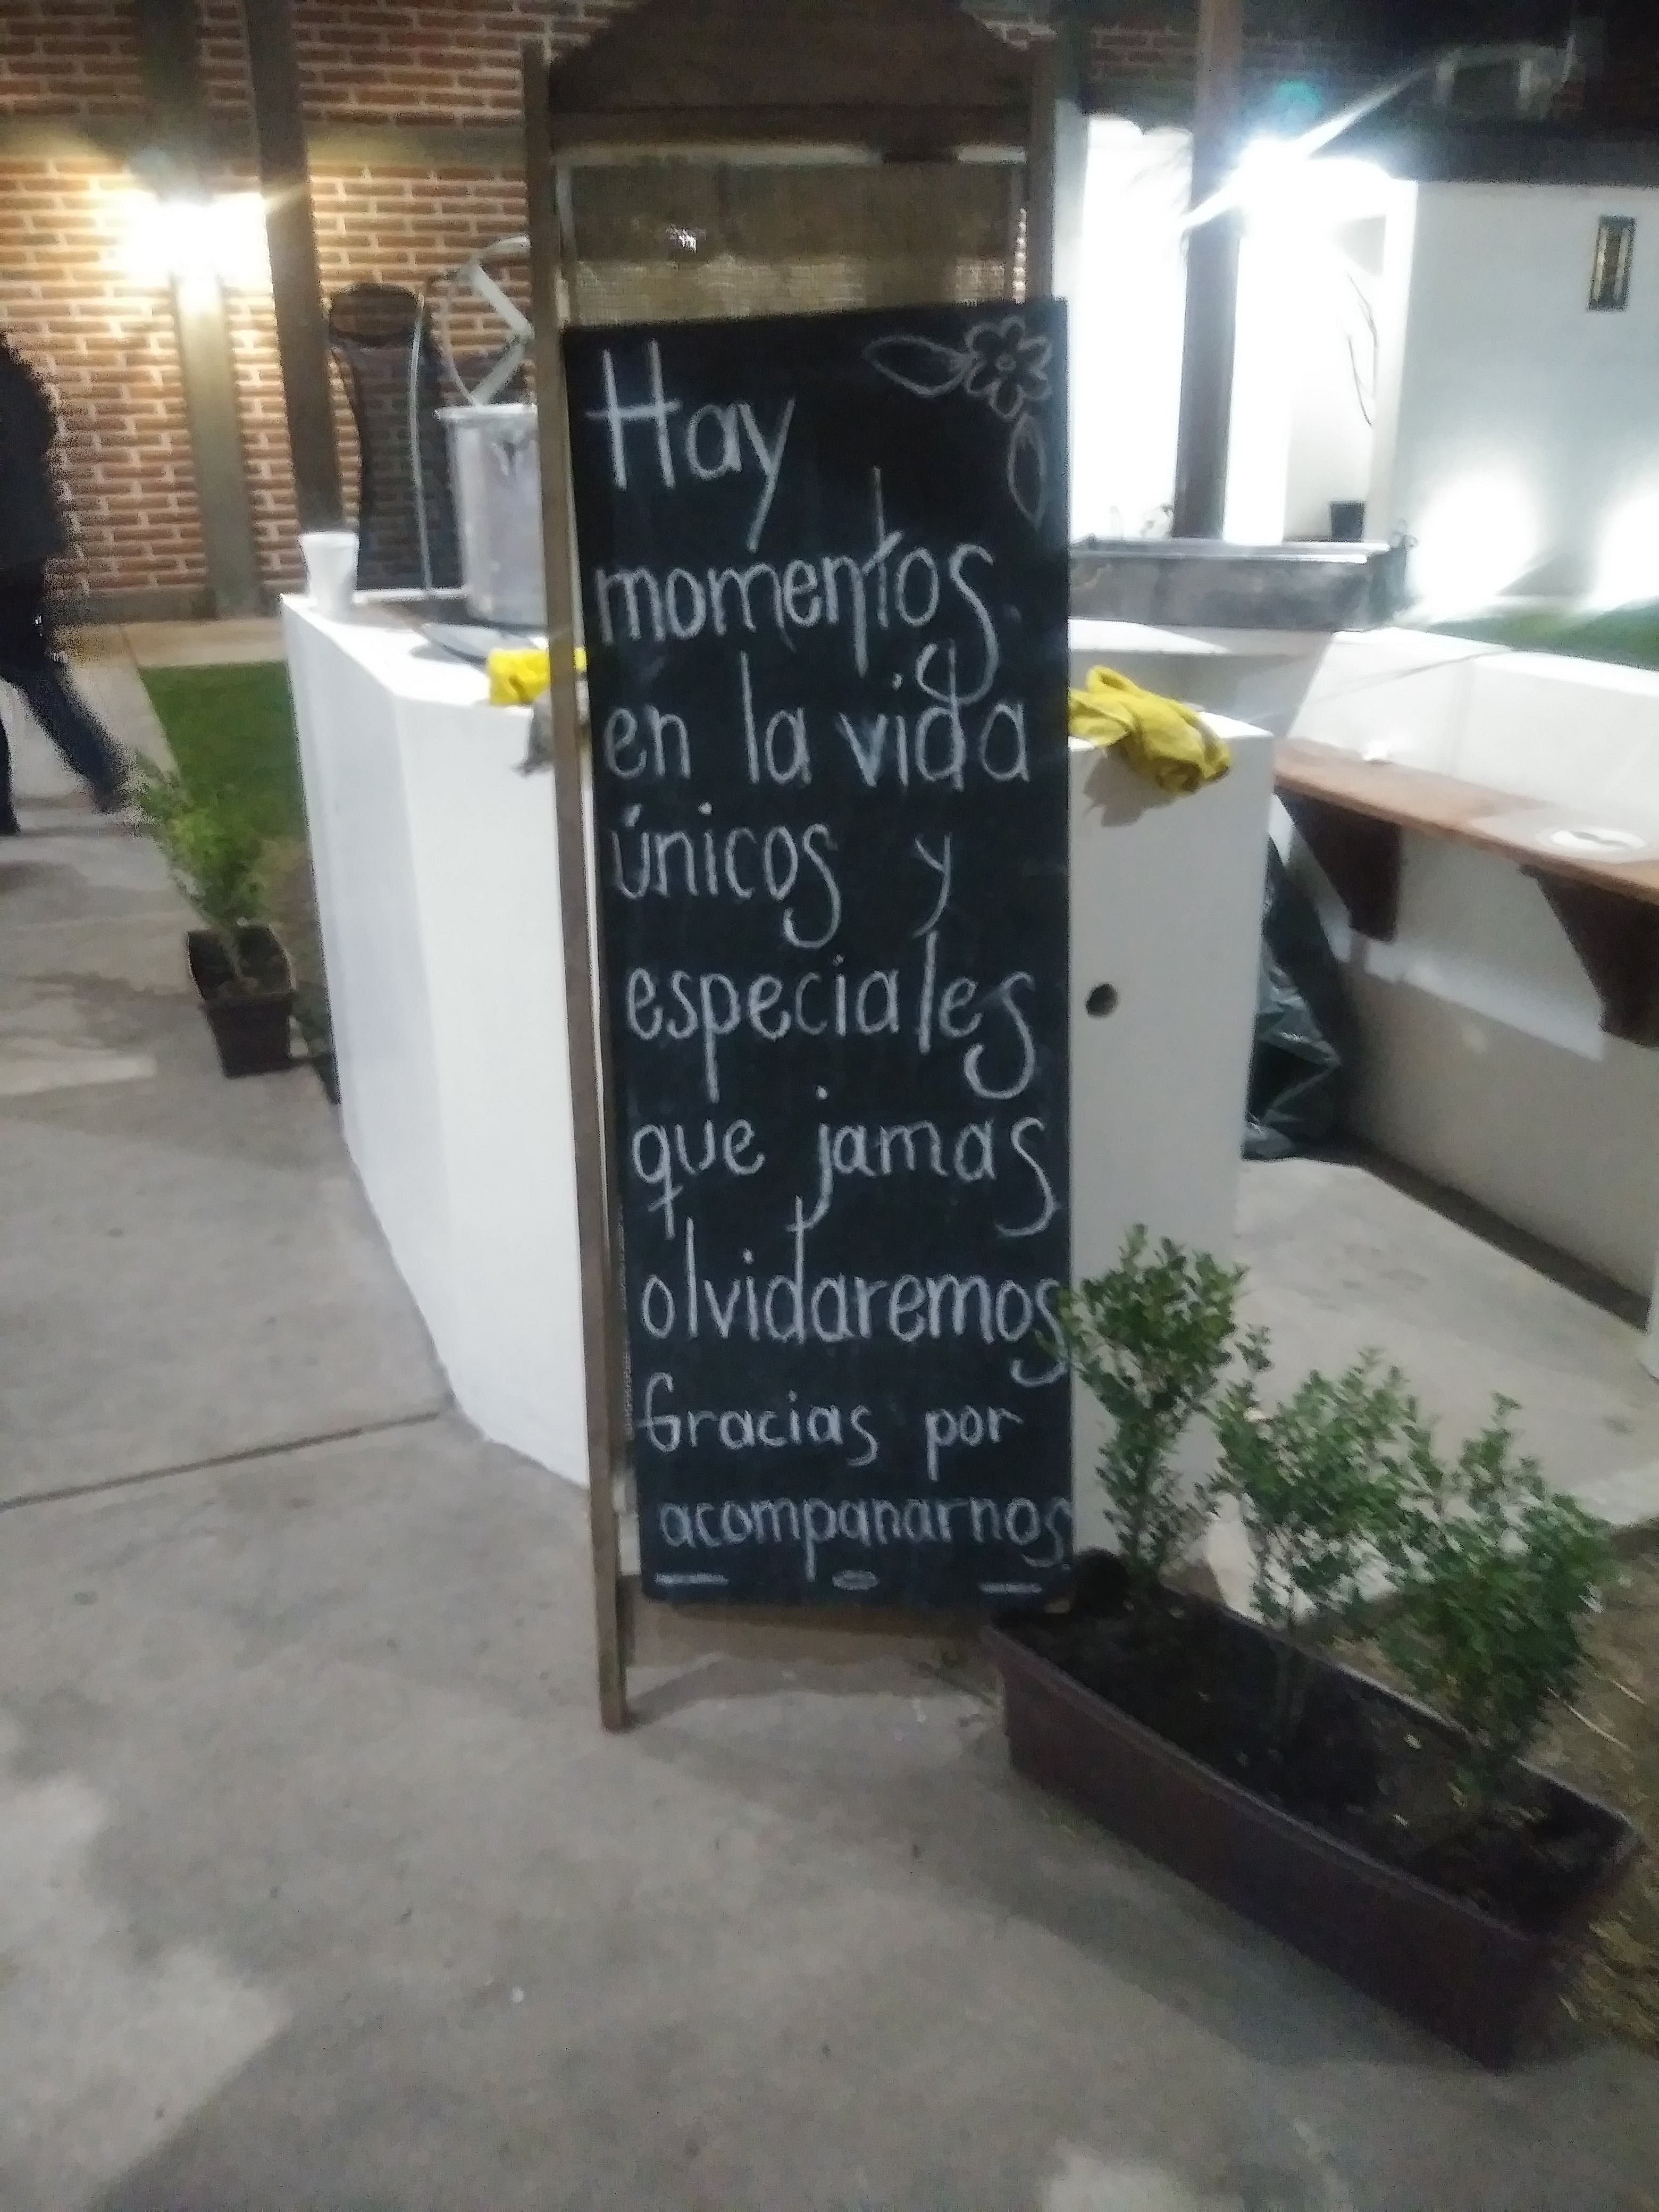 Hay
momentos
en la vida
únicos y
especiales
que jamas
olvidaremos
Gracias por
acompanarnos